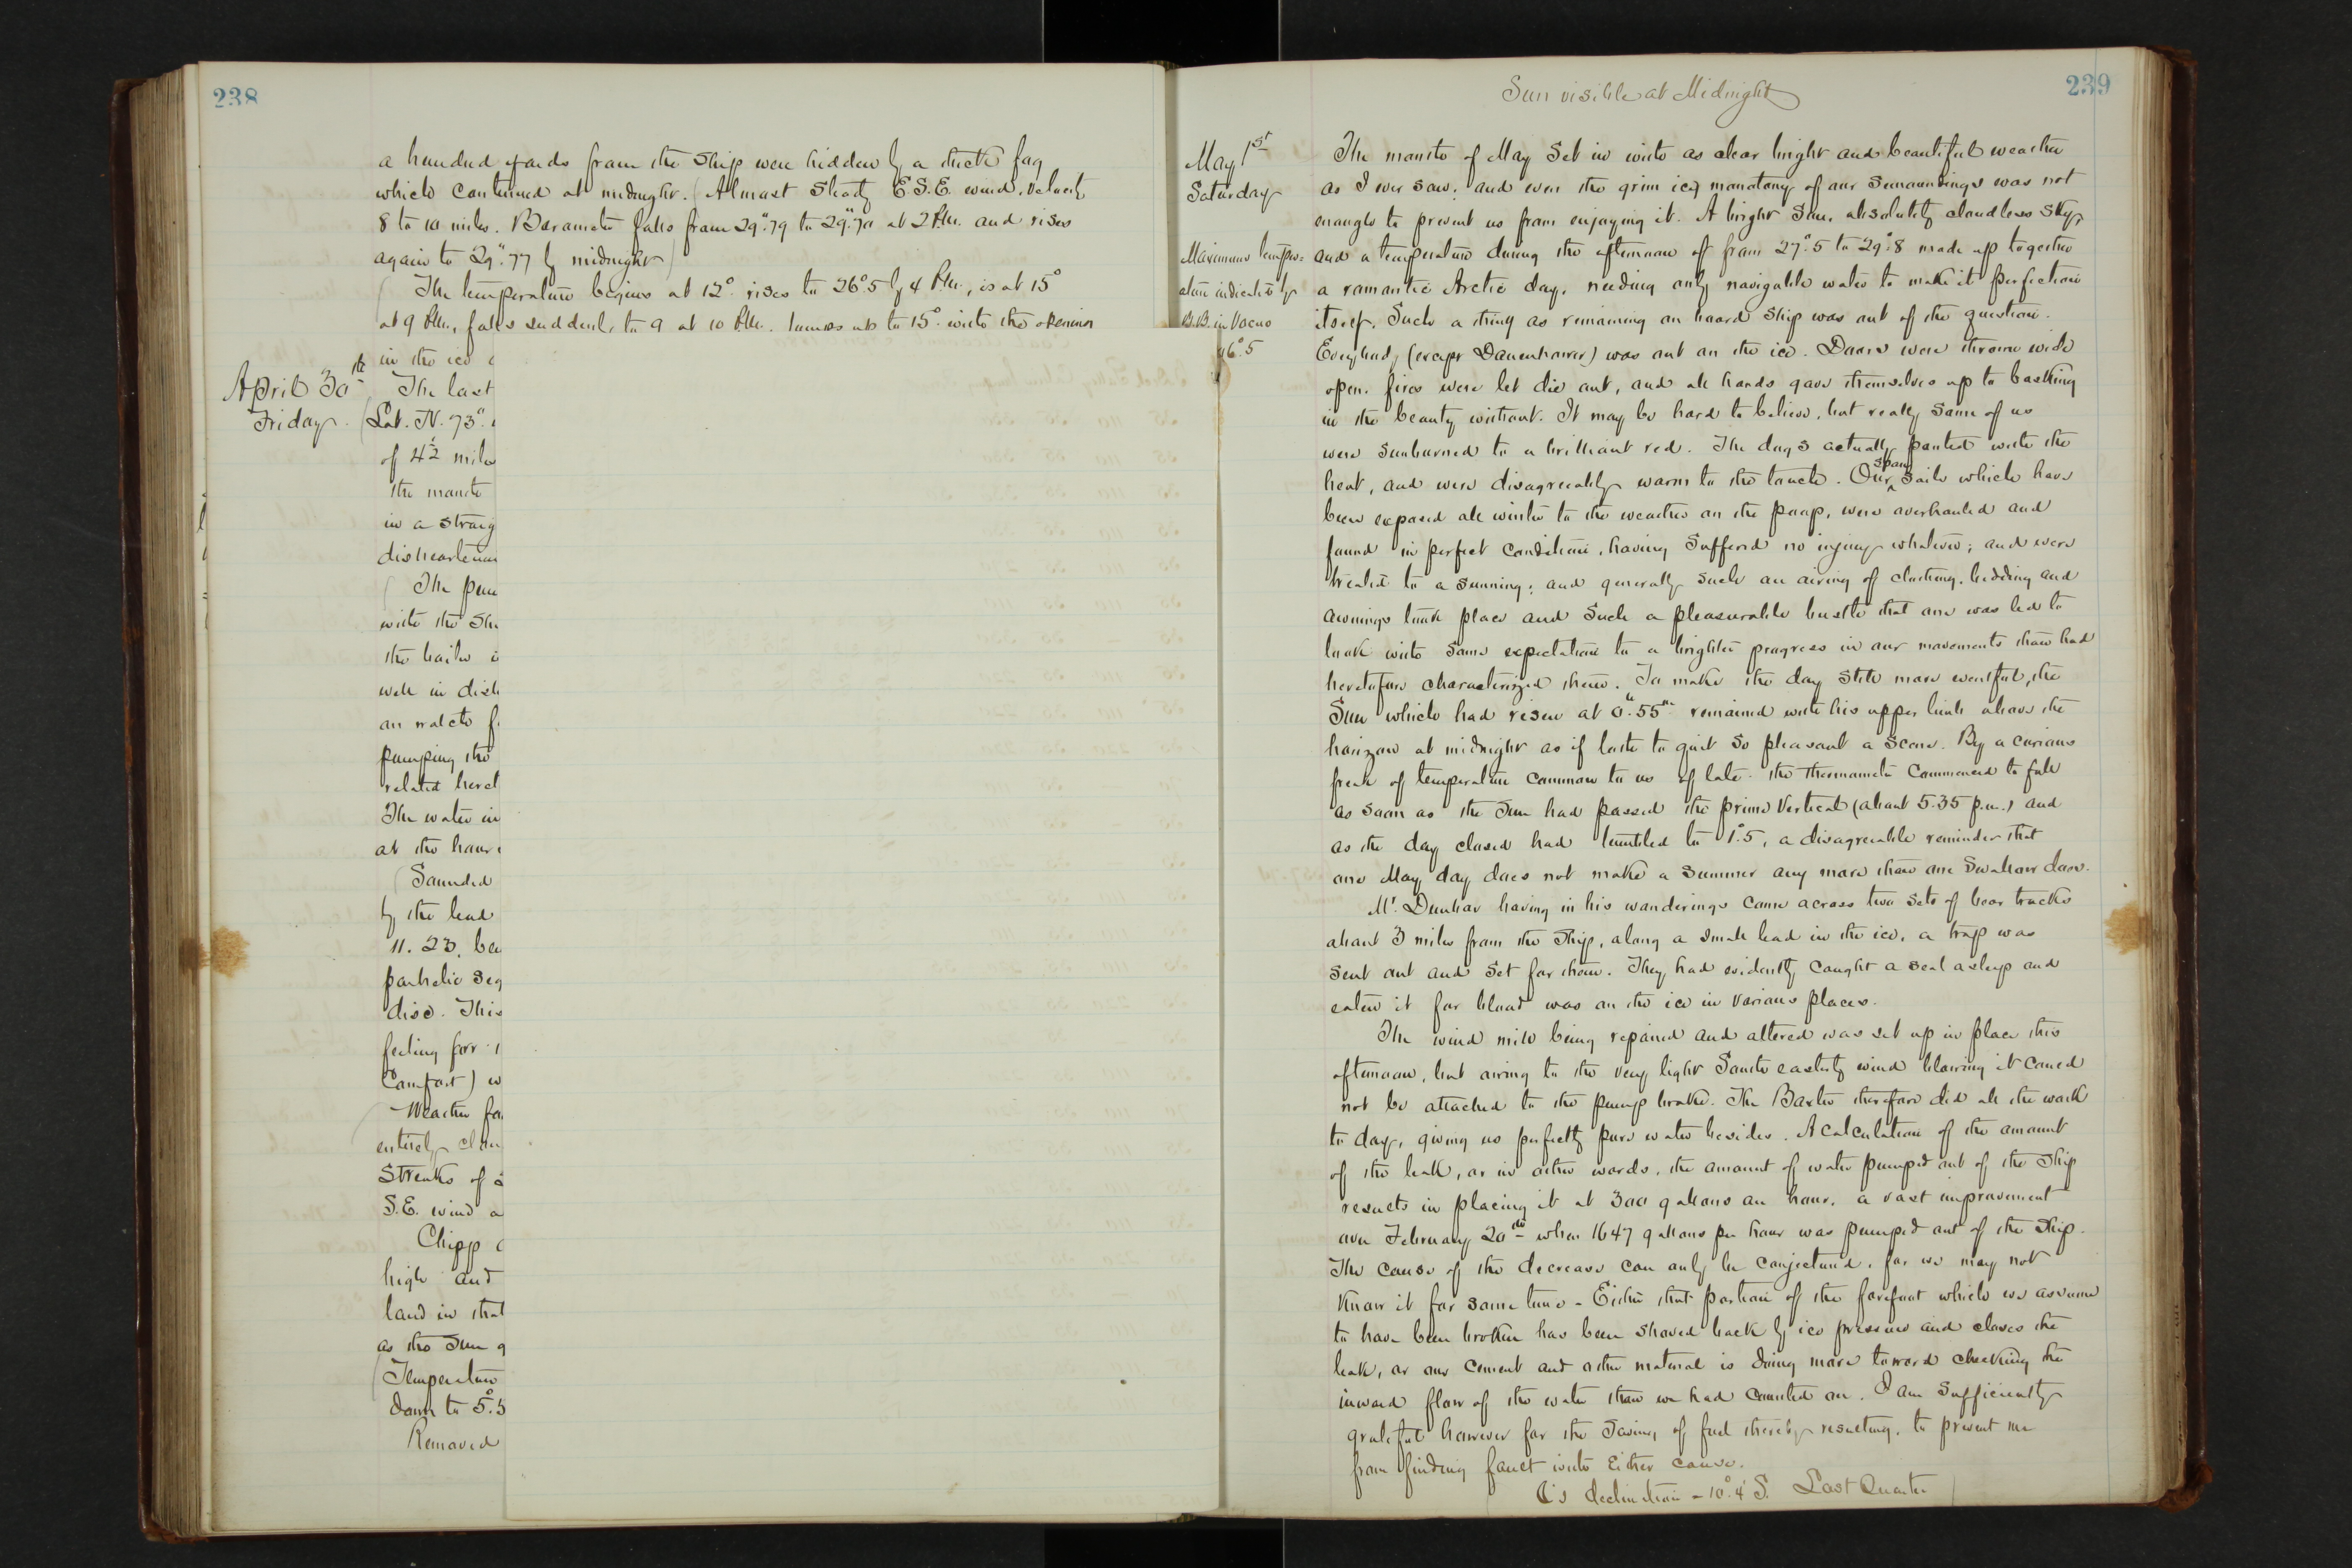 238
a hundred yards from the ship were hidden by a thick fog
which continued at midnight. (Almost steady E.S.E. wind, velocity
8 to 10 miles. Barometer falls from 29".79 to 29".70 at 2 P.M. and rises
again to 29".77 by midnight)
(The temperature begins at 12° rises to 26°.5 by 4 P.M., is at 15°
at 9 P.M., falls suddenly to 9 at 10 P.M. jumps up to 15° with the opening
in the ice
April 30th
Friday.
The last
(Lat. N. 73°
of 4½ miles
the month
in a straig
dishearten
(The pum
with the Ste
the boiler i
well in dist
on watch f
pumping the
related heret
The water in
at the hour
(Sounded
by the lead
11. 23. be
parhelic seg
disc. This
feeling for
Comfort) w
Weather fa
entirely clou
Streaks of
S.E. wind a
Chipp
high and
land in that
as the sun g
(Temperature
down to 5°.5
Removed
239
Sun visible at Midnight
May 1st
Saturday
Maximum temper-
ature indicated by
B.B. in Vacuo
96°.5
The month of May set in with as clear bright and beautiful weather
as I ever saw, and even the grim icy monotony of our surroundings was not
enough to prevent us from enjoying it. A bright Sun, absolutely cloudless sky,
and a temperature during the afternoon of from 27°.5 to 29°.8 made up together
a romantic Arctic day, needing only navigable water to make it perfection
itself. Such a thing as remaining on board ship was out of the question.
Everybody (except Danenhower) was out on the ice. Doors were thrown wide
open, fires were let die out, and all hands gave themselves up to basking
in the beauty without. It may be hard to believe, but really some of us
were sunburned to a brilliant red. The dogs actually panted with the
heat, and were disagreeably warm to the touch. Our spare sails which have
been exposed all winter to the weather on the poop, were overhauled and
found in perfect condition, having suffered no injury whatever; and were
treated to a sunning; and generally such an airing of clothing, bedding and
awnings took place and such a pleasurable bustle that one was led to
look with some expectation to a brighter progress in our movements than had
heretofore characterized them. To make the day still more eventful, the
Sun which had risen at 0h.55m remained with his upper limb above the
horizon at midnight as if loth to quit so pleasant a scene. By a curious
freak of temperature common to us of late the thermometer commenced to fall
as soon as the sun had passed the prime vertical (about 5.35 p.m.) and
as the day closed had tumbled to 1°.5, a disagreeable reminder that
one May day does not make a summer any more than one swallow does.
Mr. Dunbar having in his wanderings come across two sets of bear tracks
about 3 miles from the ship, along a small lead in the ice, a trap was
sent out and set for them. They had evidently caught a seal asleep and
eaten it for blood was on the ice in various places.
The wind mill being repaired and altered was set up in place this
afternoon, but owing to the very light South easterly wind blowing it could
not be attached to the pump brake. The Baxter therefore did all the work
to day, giving us perfectly pure water besides. A calculation of the amount
of the leak, or in other words, the amount of water pumped out of the ship
results in placing it at 300 gallons an hour, a vast improvement
over February 20th when 1647 gallons per hour was pumped out of the ship.
The cause of the decrease can only be conjectured, for we may not
know it for some time - Either that portion of the forefoot which we assume
to have been broken has been shoved back by ice pressure and closes the
leak, or our cement and other material is doing more toward checking the
inward flow of the water than we had counted on. I am sufficiently
grateful however for the saving of fuel thereby resulting, to prevent me
from finding fault with either cause.
☾'s declination - 10°.4' S. Last Quarter